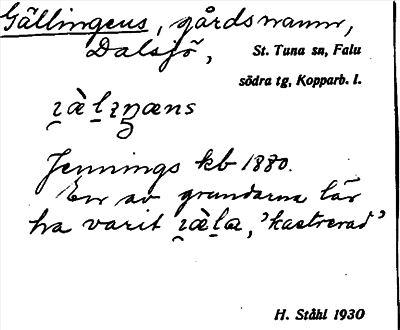 Gällingens, gårdsnamn,
Dalsjö, St. Tuna sn, Falu
södra tg, Kopparb. l.
Jennings kb 1880.
En av grundarna lär
ha varit "kastrerad"
H. Ståhl 1930